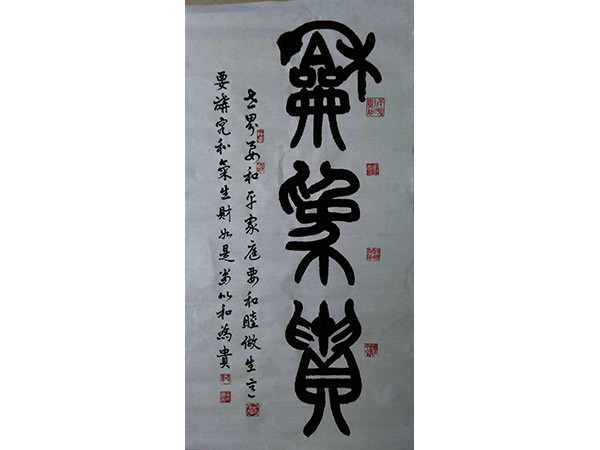 龢為貴
世界要和平家庭要和睦做生意
要講究和氣生財如是當以和為貴